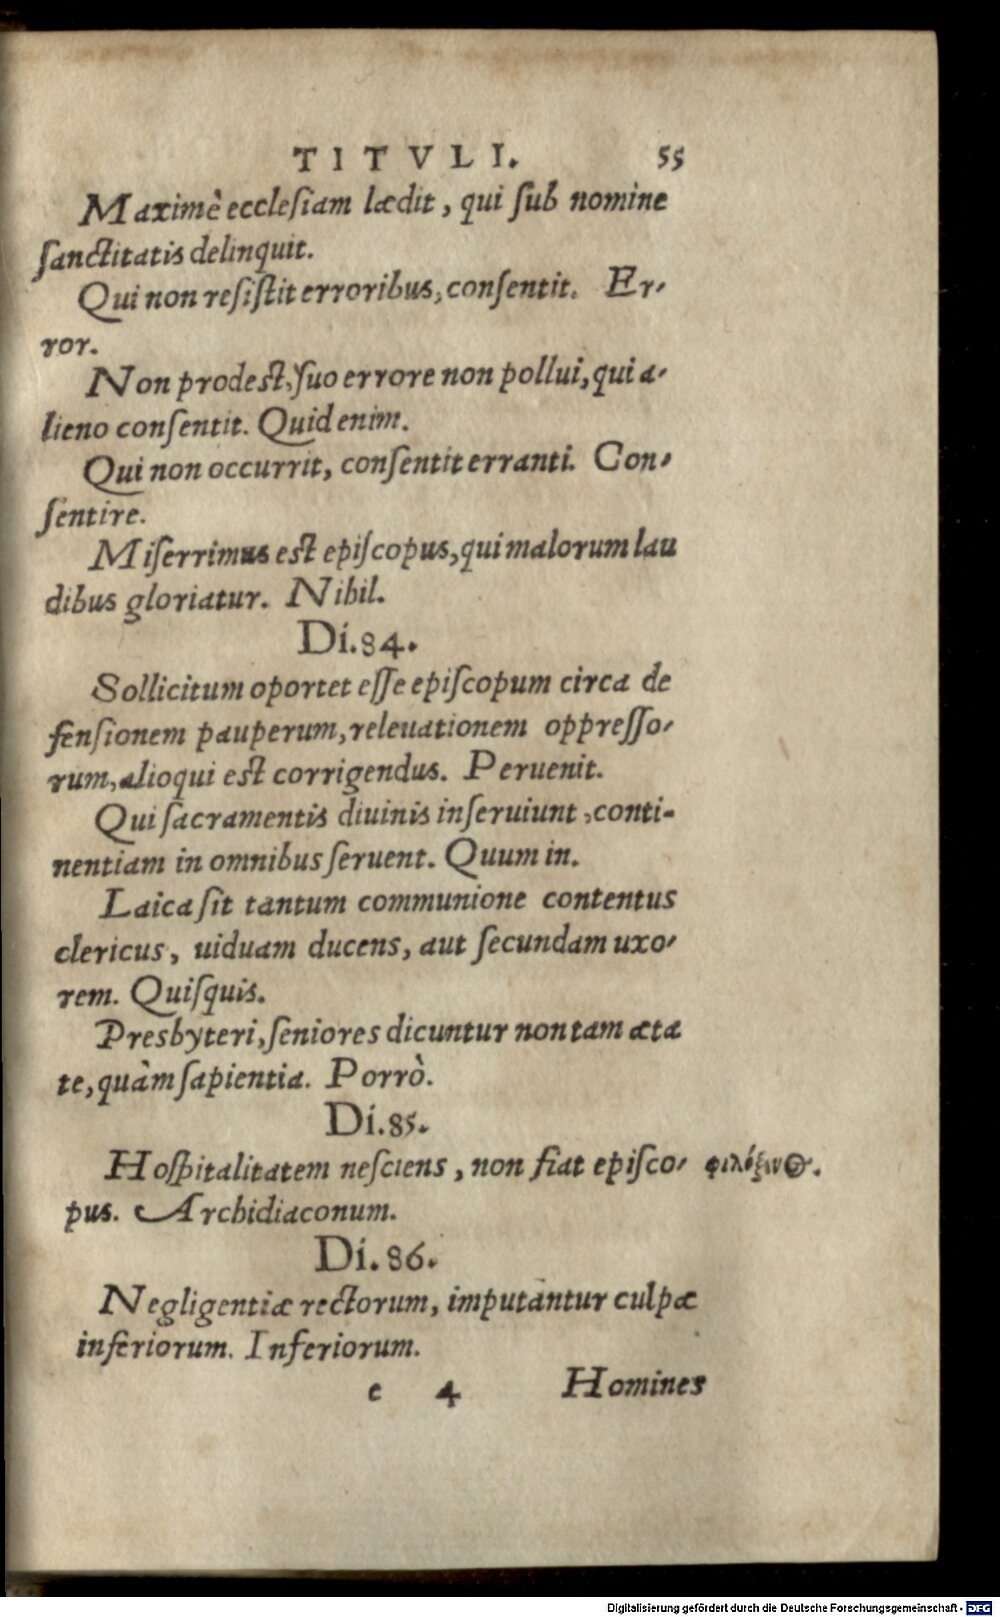 TITVLI. 55
Maximè ecclesiam lædit, qui sub nomine
sanctitatis delinquit.
Qui non resistit erroribus, consentit. Er-
ror.
Non prodest, suo errore non pollui, qui a-
lieno consentit. Quid enim.
Qui non occurrit, consentit erranti. Con-
sentire.
Miserrimus est episcopus, qui malorum lau
dibus gloriatur. Nihil.
Di.84.
Sollicitum oportet esse episcopum circa de
fensionem pauperum, releuationem oppresso-
rum, alioqui est corrigendus. Peruenit.
Qui sacramentis diuinis inseruiunt, conti-
nentiam in omnibus seruent. Quum in.
Laica sit tantum communione contentus
clericus, uiduam ducens, aut secundam uxo-
rem. Quisquis.
Presbyteri, seniores dicuntur non tam æta
te, quàm sapientia. Porrò.
Di.85.
Hospitalitatem nesciens, non fiat episco- φιλόξενος.
pus. Archidiaconum.
Di.86.
Negligentiæ rectorum, imputantur culpæ
inferiorum. Inferiorum.
e 4 Homines
Digitalisierung gefördert durch die Deutsche Forschungsgemeinschaft - DFG